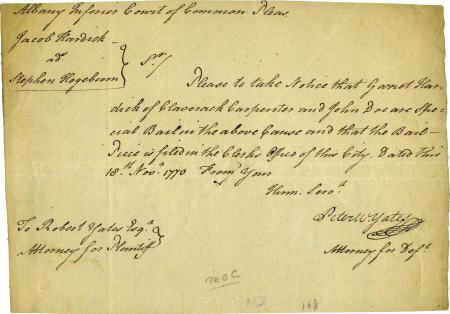 Albany Inferior Court of Common Pleas.
Jacob Hardick
ads
Stephen Hogeboom
Sir/
Please to take Notice that Garnet Har-
dick of Claverack Carpenter and John Doe are Spe-
cial Bail in the above Cause and that the Bail-
Piece is filed in the Clerks Office of this City. Dated this
18th Novr. 1770 From Your
Hum. Servt.
Peter W Yates
Attorney for Deft.
To Robert Yates Esqr.
Attorney for Plaintiff
MOC
168